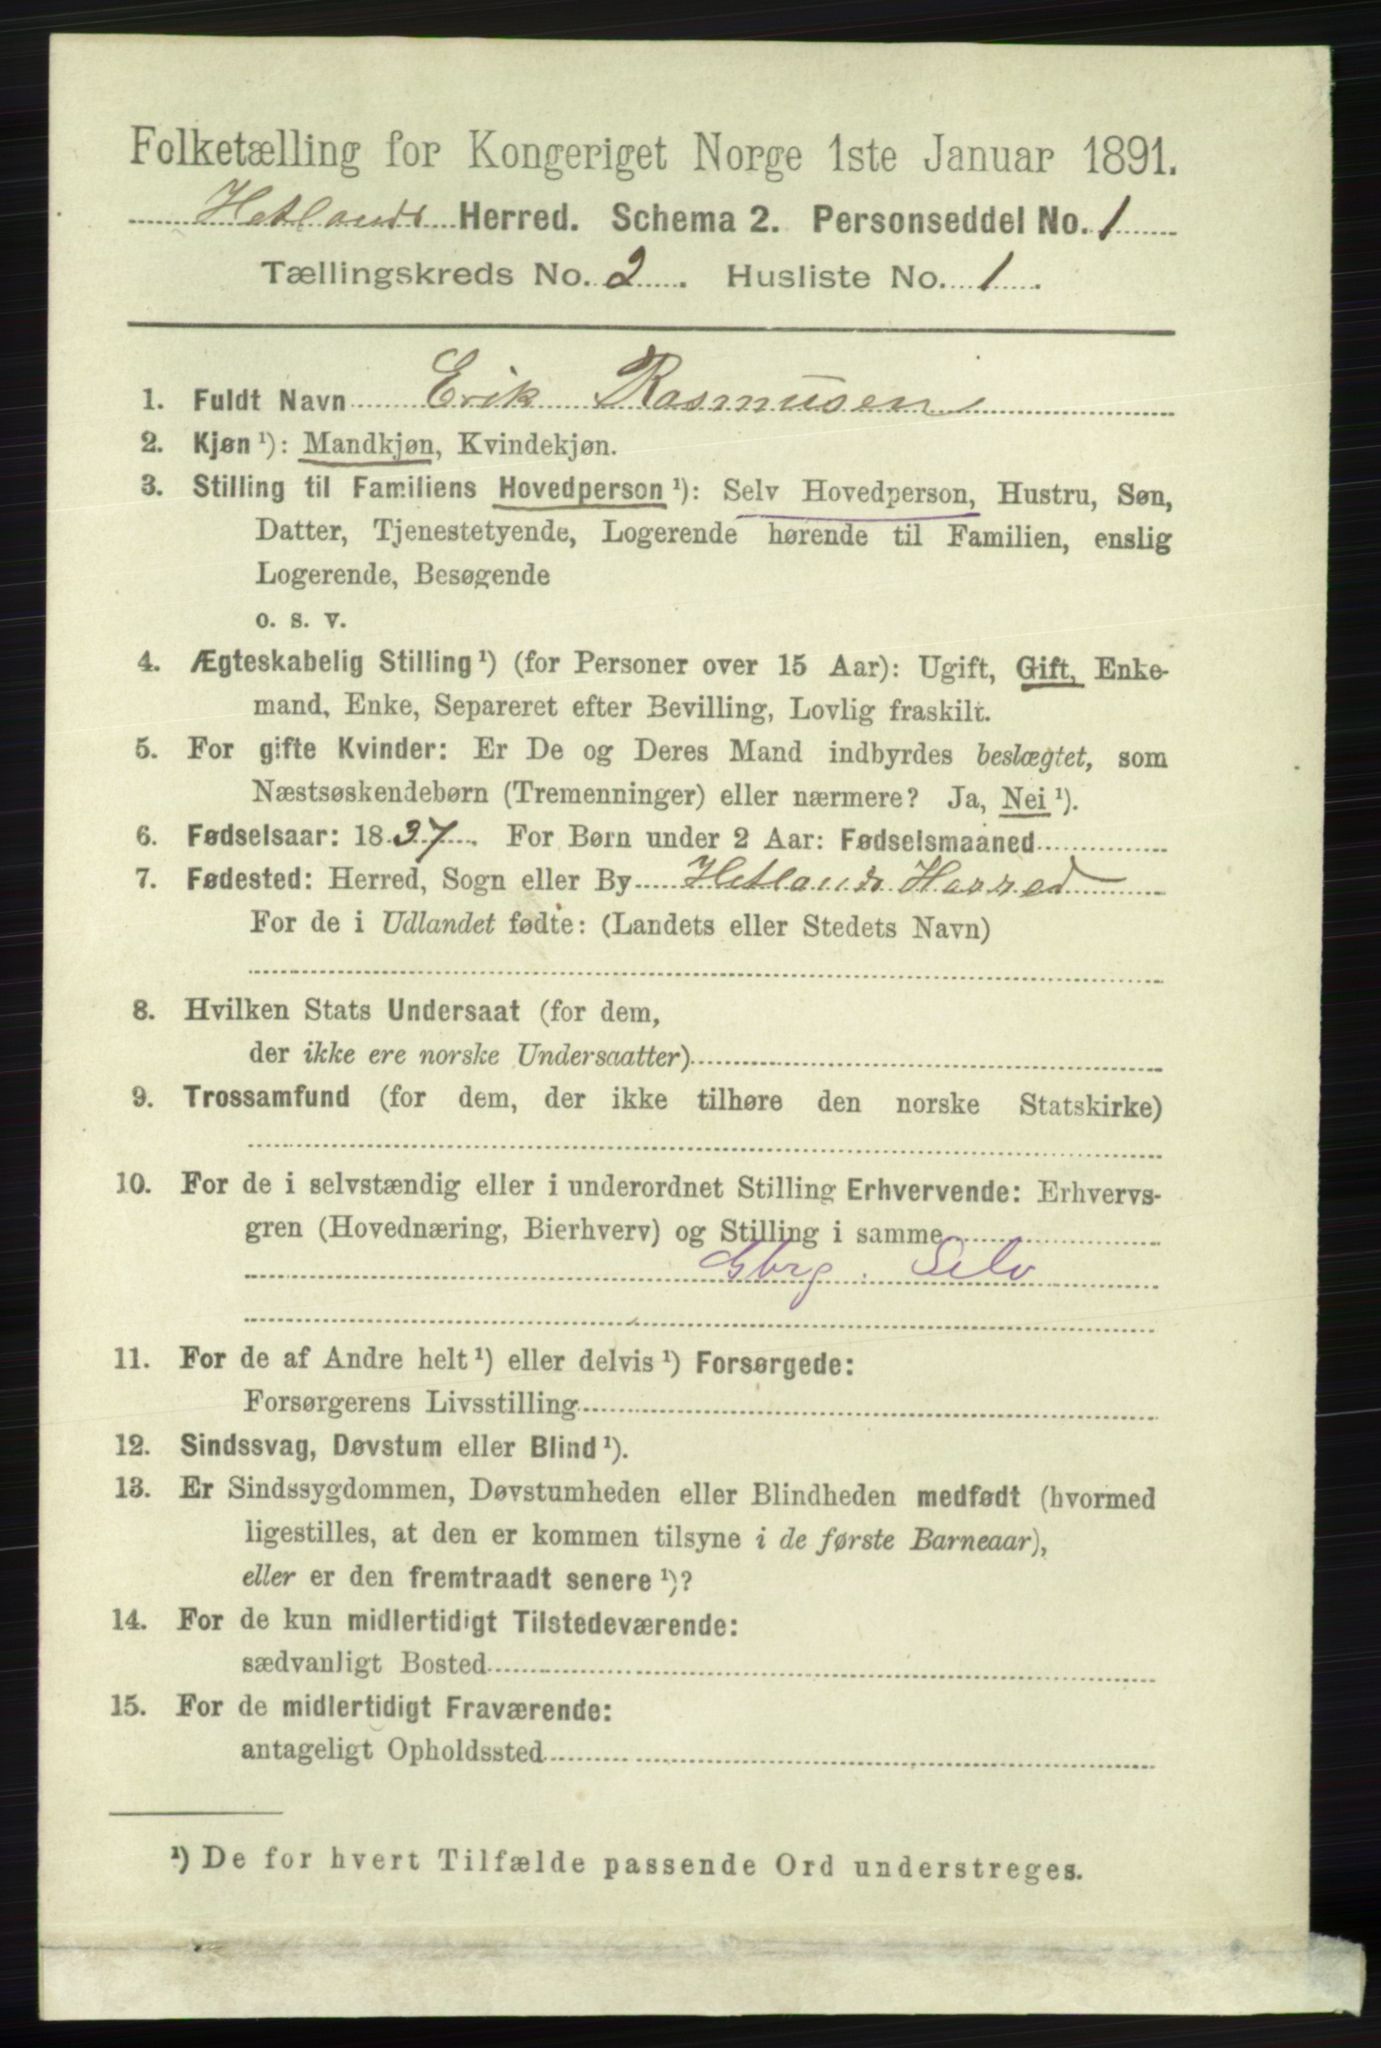 Folketælling for Kongeriget Norge 1ste Januar 1891.
Hetlands Herred. Schema 2. Personseddel No. 1
Tællingskreds No. 2. Husliste No. 1.
1. Fuldt Navn Erik Rasmusen
2. Kjøn ¹): Mandkjøn, Kvindekjøn.
3. Stilling til Familiens Hovedperson ¹): Selv Hovedperson, Hustru, Søn,
Datter, Tjenestetyende, Logerende hørende til Familien, enslig
Logerende, Besøgende
o. s. v.
4. Ægteskabelig Stilling ¹) (for Personer over 15 Aar): Ugift, Gift, Enke-
mand, Enke, Separeret efter Bevilling, Lovlig fraskilt.
5. For gifte Kvinder: Er De og Deres Mand indbyrdes beslægtet, som
Næstsøskendebørn (Tremenninger) eller nærmere? Ja, Nei ¹).
6. Fødselsaar: 1837. For Børn under 2 Aar: Fødselsmaaned
7. Fødested: Herred, Sogn eller By Hetlands Harred
For de i Udlandet fødte: (Landets eller Stedets Navn)
8. Hvilken Stats Undersaat (for dem,
der ikke ere norske Undersaatter)
9. Trossamfund (for dem, der ikke tilhøre den norske Statskirke)
10. For de i selvstændig eller i underordnet Stilling Erhvervende: Erhvervs-
gren (Hovednæring, Bierhverv) og Stilling i samme
Gbrg. Selv
11. For de af Andre helt ¹) eller delvis ¹) Forsørgede:
Forsørgerens Livsstilling
12. Sindssvag, Døvstum eller Blind ¹).
13. Er Sindssygdommen, Døvstumheden eller Blindheden medfødt (hvormed
ligestilles, at den er kommen tilsyne i de første Barneaar),
eller er den fremtraadt senere ¹)?
14. For de kun midlertidigt Tilstedeværende:
sædvanligt Bosted
15. For de midlertidigt Fraværende:
antageligt Opholdssted
¹) De for hvert Tilfælde passende Ord understreges.